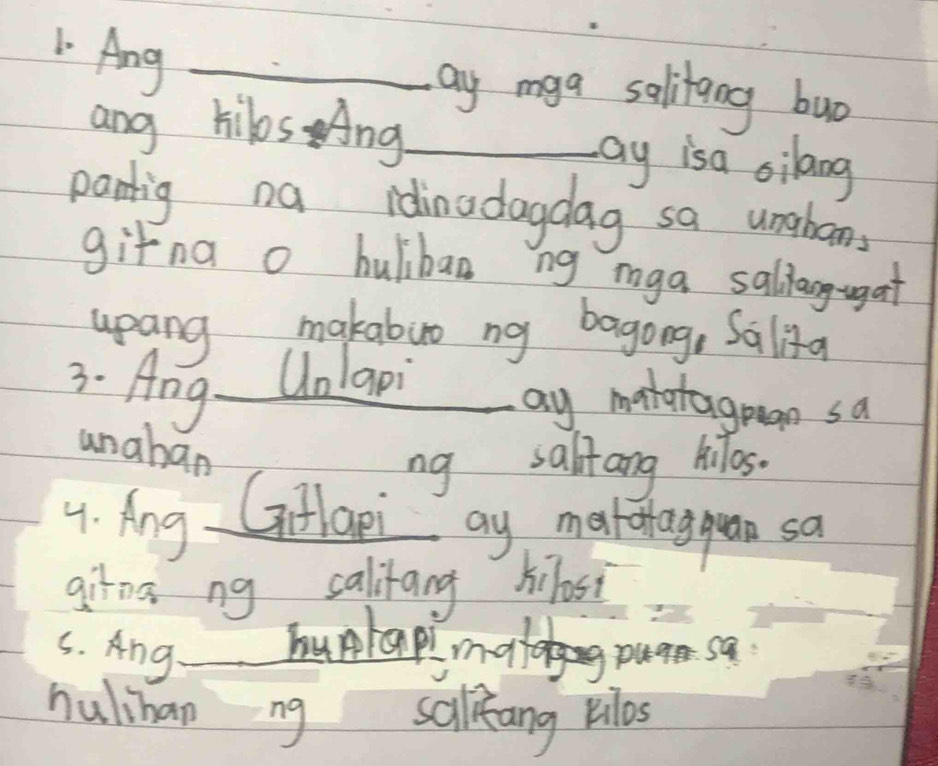 1. Ang ________ ay mga salitang buo
ang kilos Ang ________ ay isa oilang
pantig na idinadagdag sa unahan,
gitna o hulihan ng mga salitang-ugat
upang makabuo ng bagong, Salita
3. Ang Unlapi ay matatagpuan sa
unahan ng salitang kilos.
4. Ang Gitlapi ay matatagpuan sa
gitna ng salitang kilos
5. Ang hunlapi matatagpuan sa
hulihan ng salitang kilos